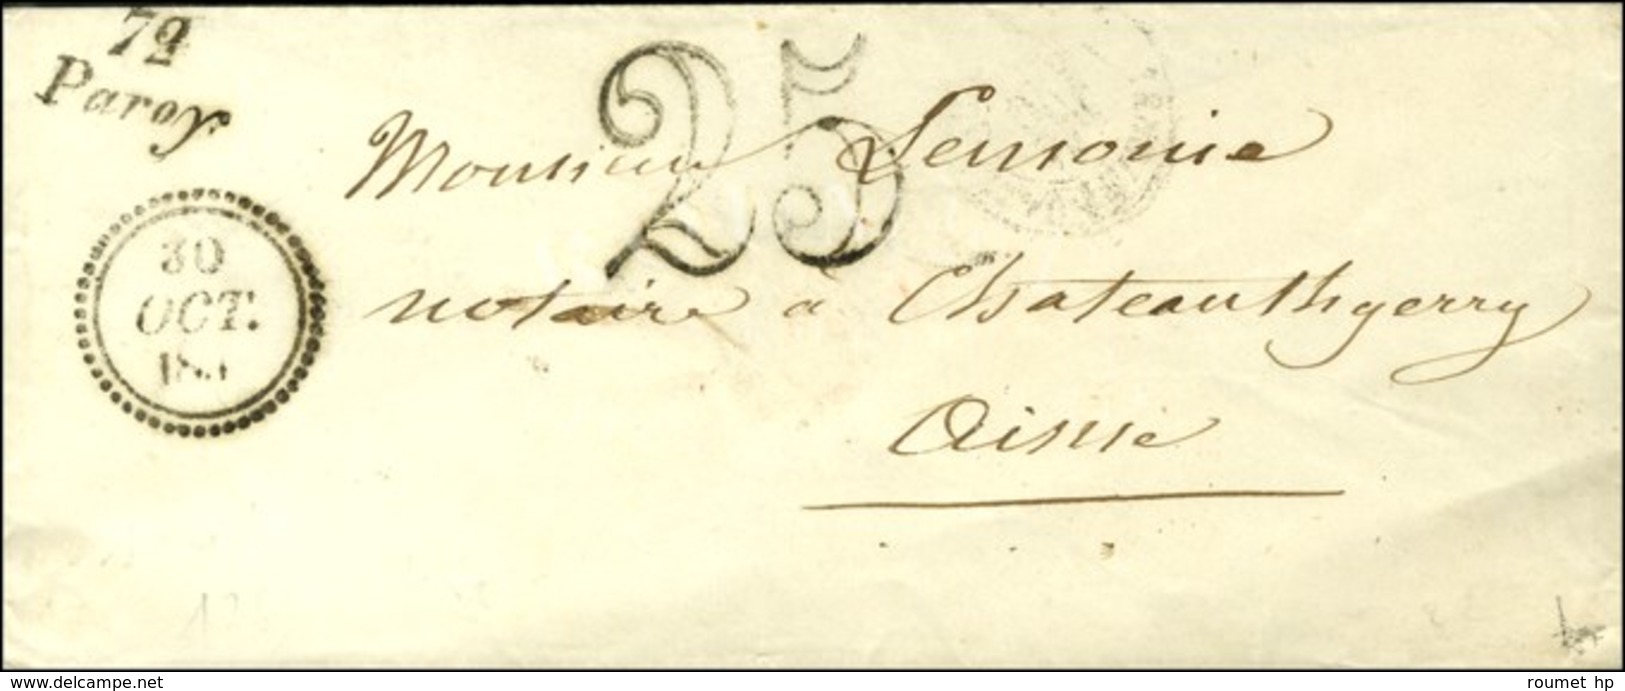 72
Paroy
30
OCT.
25
Monsieur Lemoine
notaire à Chateauthyerry
Aisne
www.delcampe.net
roumet hp